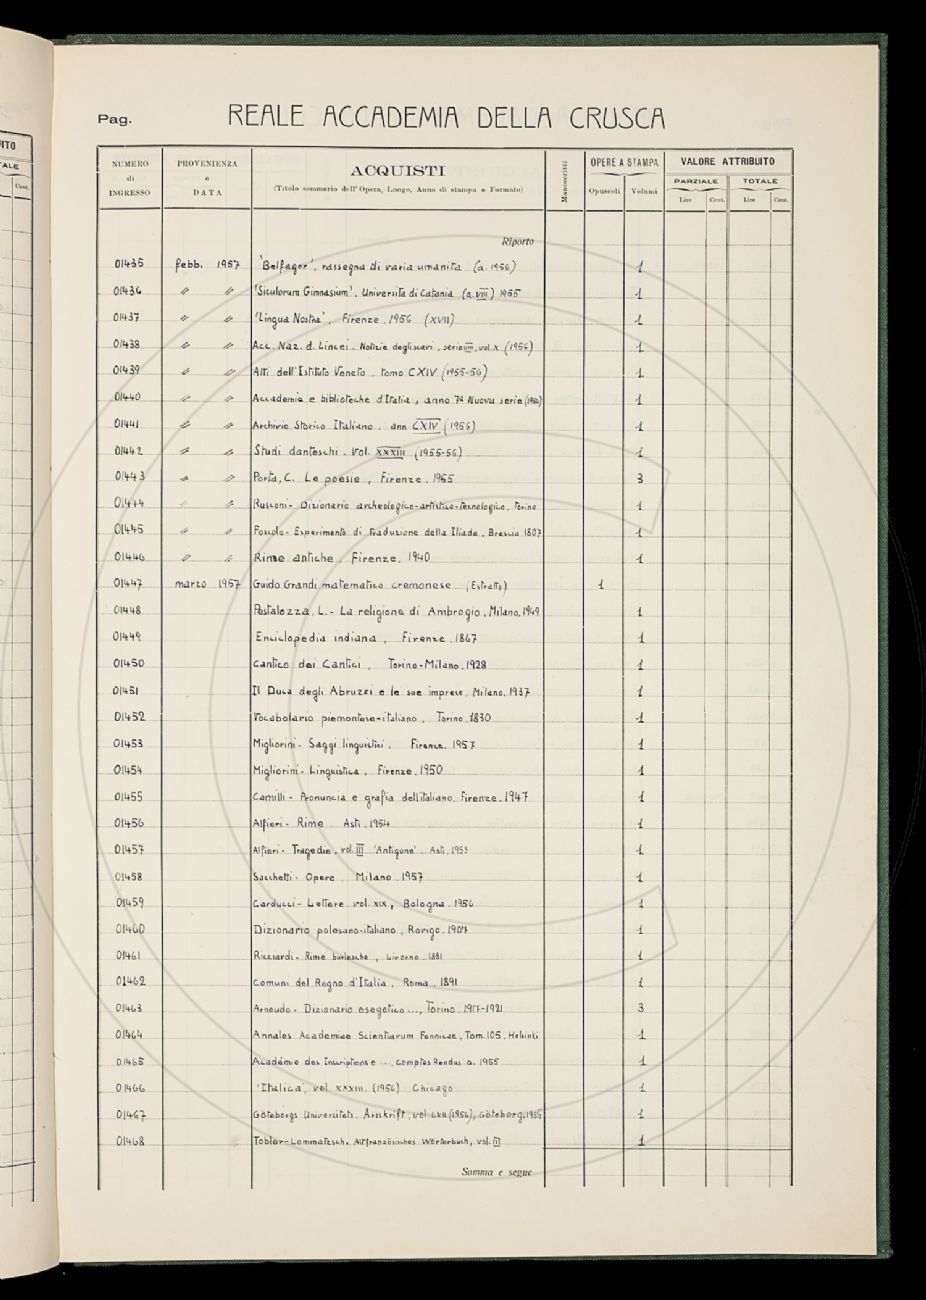 UITO
ALE
Cent.
Pag. REALE ACCADEMIA DELLA CRUSCA
NUMERO di INGRESSO PROVENIENZA e DATA ACQUISTI (Titolo sommario dell'Opera, Luogo, Anno di stampa e Formato) Manoscritti OPERE A STAMPA Opuscoli Volumi VALORE ATTRIBUITO PARZIALE Lire Cent. TOTALE Lire Cent.
Riporto
01435 febb. 1957 'Belfagor', rassegna di varia umanita (a. 1956) 1
01436 〃 〃 'Siculorum Gimnasium'. Università di Catania (a. VIII) 1955 1
01437 〃 〃 'Lingua Nostra', Firenze. 1956 (XVII) 1
01438 〃 〃 Acc. Naz. d. Lincei. Notizie degli scavi, serie VIII, vol. X (1956) 1
01439 〃 〃 Atti dell'Istituto Veneto, tomo CXIV (1955-56) 1
01440 〃 〃 Accademie e biblioteche d'Italia, anno 7º Nuova serie 1
01441 〃 〃 Archivio Storico Italiano. ann CXIV (1956) 1
01442 〃 〃 Studi danteschi. Vol. XXXIII (1955-56) 1
01443 〃 〃 Porta, C. Le poesie, Firenze, 1955 3
01444 〃 〃 Rusconi - Dizionario archeologico-artistico-tecnologico, Torino 1
01445 〃 〃 Foscolo - Esperimento di traduzione della Iliade, Brescia 1807 1
01446 〃 〃 Rime antiche, Firenze, 1940 1
01447 marzo 1957 Guido Grandi matematico cremonese (Estratto) 1
01448 Pestalozza, L. - La religione di Ambrogio, Milano, 1949 1
01449 Enciclopedia indiana, Firenze, 1867 1
01450 Cantico dei Cantici, Torino-Milano, 1928 1
01451 Il Duca degli Abruzzi e le sue imprese, Milano, 1937 1
01452 Vocabolario piemontese-italiano, Torino 1830 1
01453 Migliorini - Saggi linguistici. Firenze, 1957 1
01454 Migliorini - Linguistica, Firenze, 1950 1
01455 Camilli - Pronuncia e grafia dell'italiano. Firenze, 1947 1
01456 Alfieri - Rime Asti, 1954 1
01457 Alfieri - Tragedie, vol. III 'Antigone'. Asti, 1953 1
01458 Sacchetti - Opere. Milano, 1957 1
01459 Carducci - Lettere vol. XIX, Bologna, 1956 1
01460 Dizionario polesano-italiano, Rovigo, 1907 1
01461 Ricciardi - Rime burlesche, Livorno, 1881 1
01462 Comuni del Regno d'Italia, Roma, 1891 1
01463 Arneudo - Dizionario esegetico ..., Torino 1917-1921 3
01464 Annales Academiae Scientiarum Fennicae, Tom. 105, Helsinki 1
01465 Académie des Inscriptions e ..., Comptes Rendus a. 1955 1
01466 'Italica', vol. XXXIII. (1956) Chicago 1
01467 Göteborgs Universitets. Årsskrift, vol. LXII (1956), Göteborg, 1956 1
01468 Tobler-Lommatzsch. Altfranzösisches Wörterbuch, vol. III 1
Somma e segue